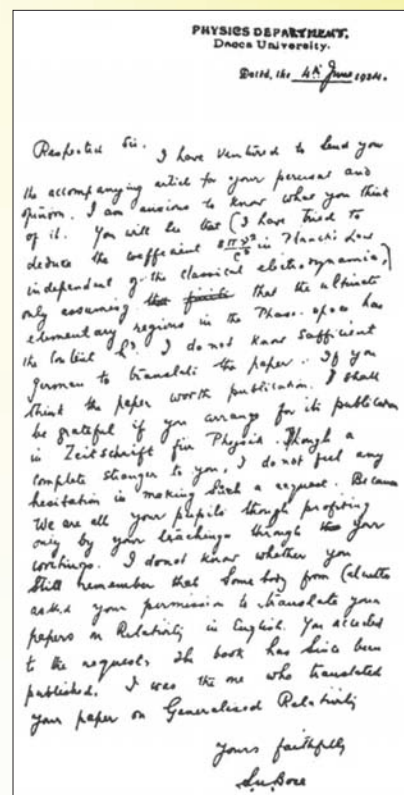 PHYSICS DEPARTMENT,
Dacca University.
Dated, the 4th June 1924.
Respected Sir. I have ventured to send you
the accompanying article for your perusal and
opinion. I am anxious to know what you think
of it. You will see that I have tried to
deduce the coefficient 8πν²/c³ in Planck's Law
independent of the classical electrodynamics,
only assuming that the ultimate
elementary regions in the Phase-space has
the content h³. I do not know sufficient
german to translate the paper. If you
think the paper worth publication. I shall
be grateful if you arrange for its publication
in Zeitschrift für Physik. Though a
complete stranger to you, I do not feel any
hesitation in making such a request. Because
We are all your pupils though profiting
only by your teachings through your
writings. I donot know whether you
still remember that Somebody from Calcutta
asked your permission to translate your
papers on Relativity in English. You acceded
to the request. The book has since been
published. I was the one who translated
your paper on Generalised Relativity
Yours faithfully
S.N. Bose